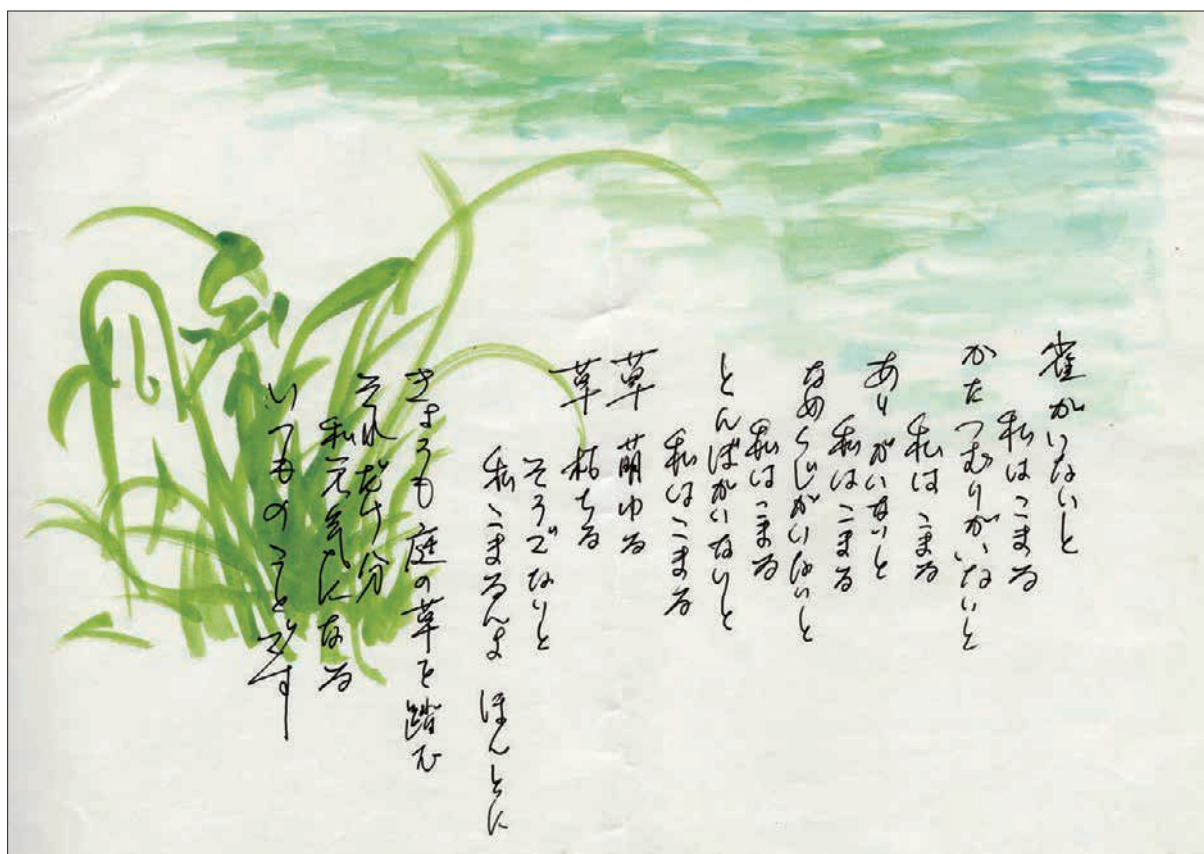 雀がいないと
私はこまる
かたつむりがいないと
私はこまる
ありがいないと
私はこまる
なめくじがいないと
私はこまる
とんぼがいないと
私はこまる
草 萌ゆる
草 枯ちる
そうでないと
私こまるんよ ほんとに
きょうも庭の草を踏む
それだけ分
私元気になる
いつものことです